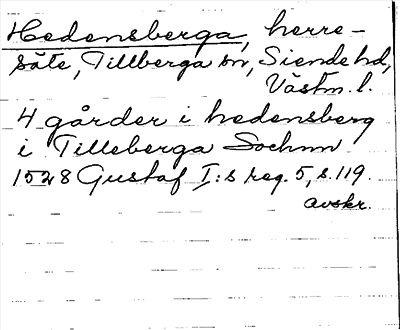 Hedensberga, herre-
säte, Tillberga sn, Siende hd,
Västm. l.
4 gårder i hedensberg
i Tilleberga Sochnn
1528 Gustaf I:s reg. 5, s. 119.
avskr.